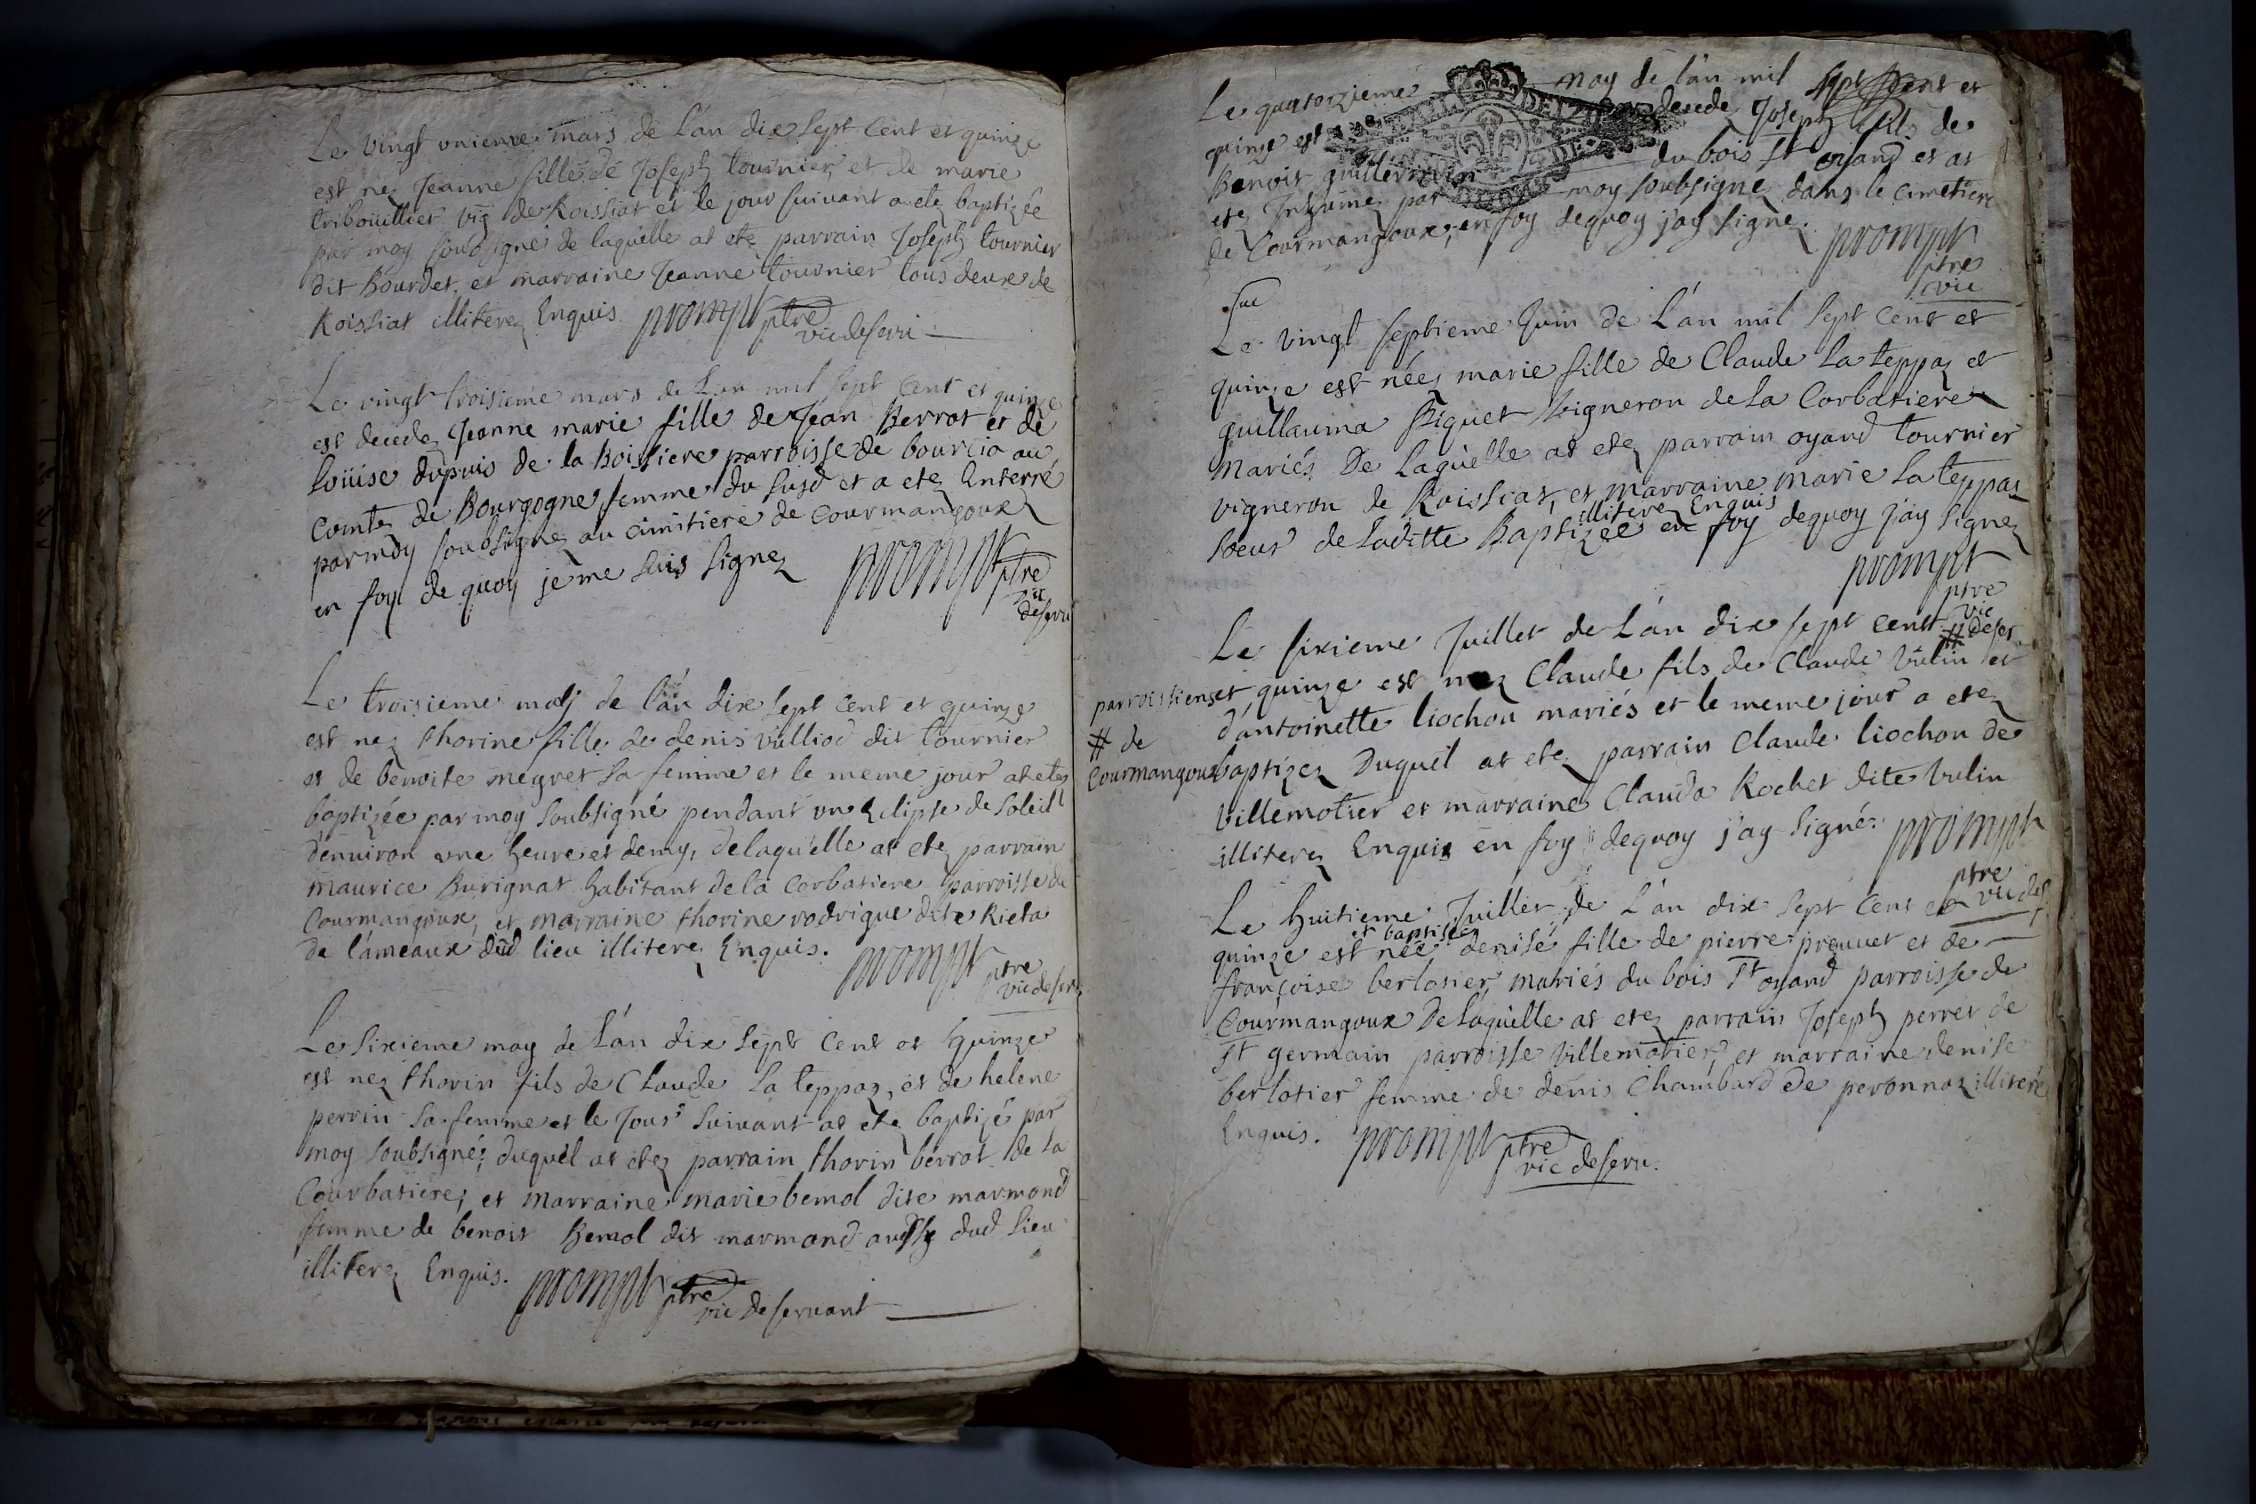 Le vingt unieme mars de L'an dix sept cent et quinze
est nez Jeanne fille de Joseph tournier et de marie
Cribouillier vig de Roissiat et le jour suivant a etez baptizée
par moy soubsigné de laquelle at etez parrain Joseph tournier
dit Bourdet et marraine Jeanne tournier tous deux de
Roissiat illiterez Enquis prompt ptre
vic deservi
Le vingt troisieme mars de L'an mil sept Cent et quinze
est decedez Jeanne marie fille de Jean Berrot et de
Loüise dupuis de la Boissiere parroisse de bourcia au
Comtez de Bourgogne femme du susd et a etez Enterré
par moy soubsignez au cimitiere de Courmangoux
en foy de quoy je me suis signez prompt ptre
vic
deservi
Le troisieme may de l'an dix sept cent et quinze
est nez thorine fille de denis vulliod dit tournier
et de benoite megret sa femme et le meme jour at etez
baptizée par moy soubsigné pendant un Eclipse de soleill
d'enuiron une heure et demy, de laquelle at etez parrain
maurice Burignat habitant de la Corbatiere parroisse de
Courmangoux, et marraine thorine rodrigue dite Rieta
de l'ameaux dud lieu illiterez Enquis. prompt ptre
vic deser
Le Sixieme may de L'an dix Sept Cent et quinze
est nez thorin fils de Claude La teppaz, et de helene
perrin sa femme et le Jour suivant at etez baptizé par
moy soubsigné; duquel at etez parrain thorin berrot de la
Courbatiere, et Marraine marie bemol dite marmond
femme de benoit Bemol dit marmond aussy dud lieu
illiterez Enquis. prompt ptre
vic deservant
Le quatorzieme may de l'an mil sept cent et
quinze est decede Joseph fils de
Benoit guillermin du bois St oyand et at
etez Inhumez par moy soubsigné dans le cimetiere
de Courmangoux, en foy dequoy j'ay signé. prompt
ptre
vic
Le vingt septieme Juin de L'an mil sept cent et
quinze est néez marie fille de Claude La teppaz et
guillauma Piquet vigneron de La Corbatiere
Mariés De Laquelle at etez parrain oyand tournier
vigneron de Roissiat, et marraine marie La teppaz
illiterez Enquis
soeur de Laditte Baptizée en foy dequoy j'ay signez
prompt
ptre
vic
deser
Le sixieme Juillet de L'an dix sept cent #
parroissiens et quinze est nez Claude fils de Claude Vulin et
# de d'antoinette liochon mariés et le meme jour a etez
Courmangoux baptizez Duquel at etez parrain Claude liochon de
Villemotier et marraine Clauda Rochet dite Vulin
illiterez Enquis en foy dequoy j'ay signé: prompt
ptre
vic des
Le huitieme Juillet de L'an dix sept Cent et
et baptisée
quinze est née denise fille de pierre preuuet et de
françoise berlotier mariés du bois St oyand parroisse de
Courmangoux De laquelle at etez parrain Joseph perret de
St germain parroisse Villemotier, et marraine denise
berlotier femme de denis Chambard de peronnaz illiteré
Enquis. prompt ptre
vic deserv.